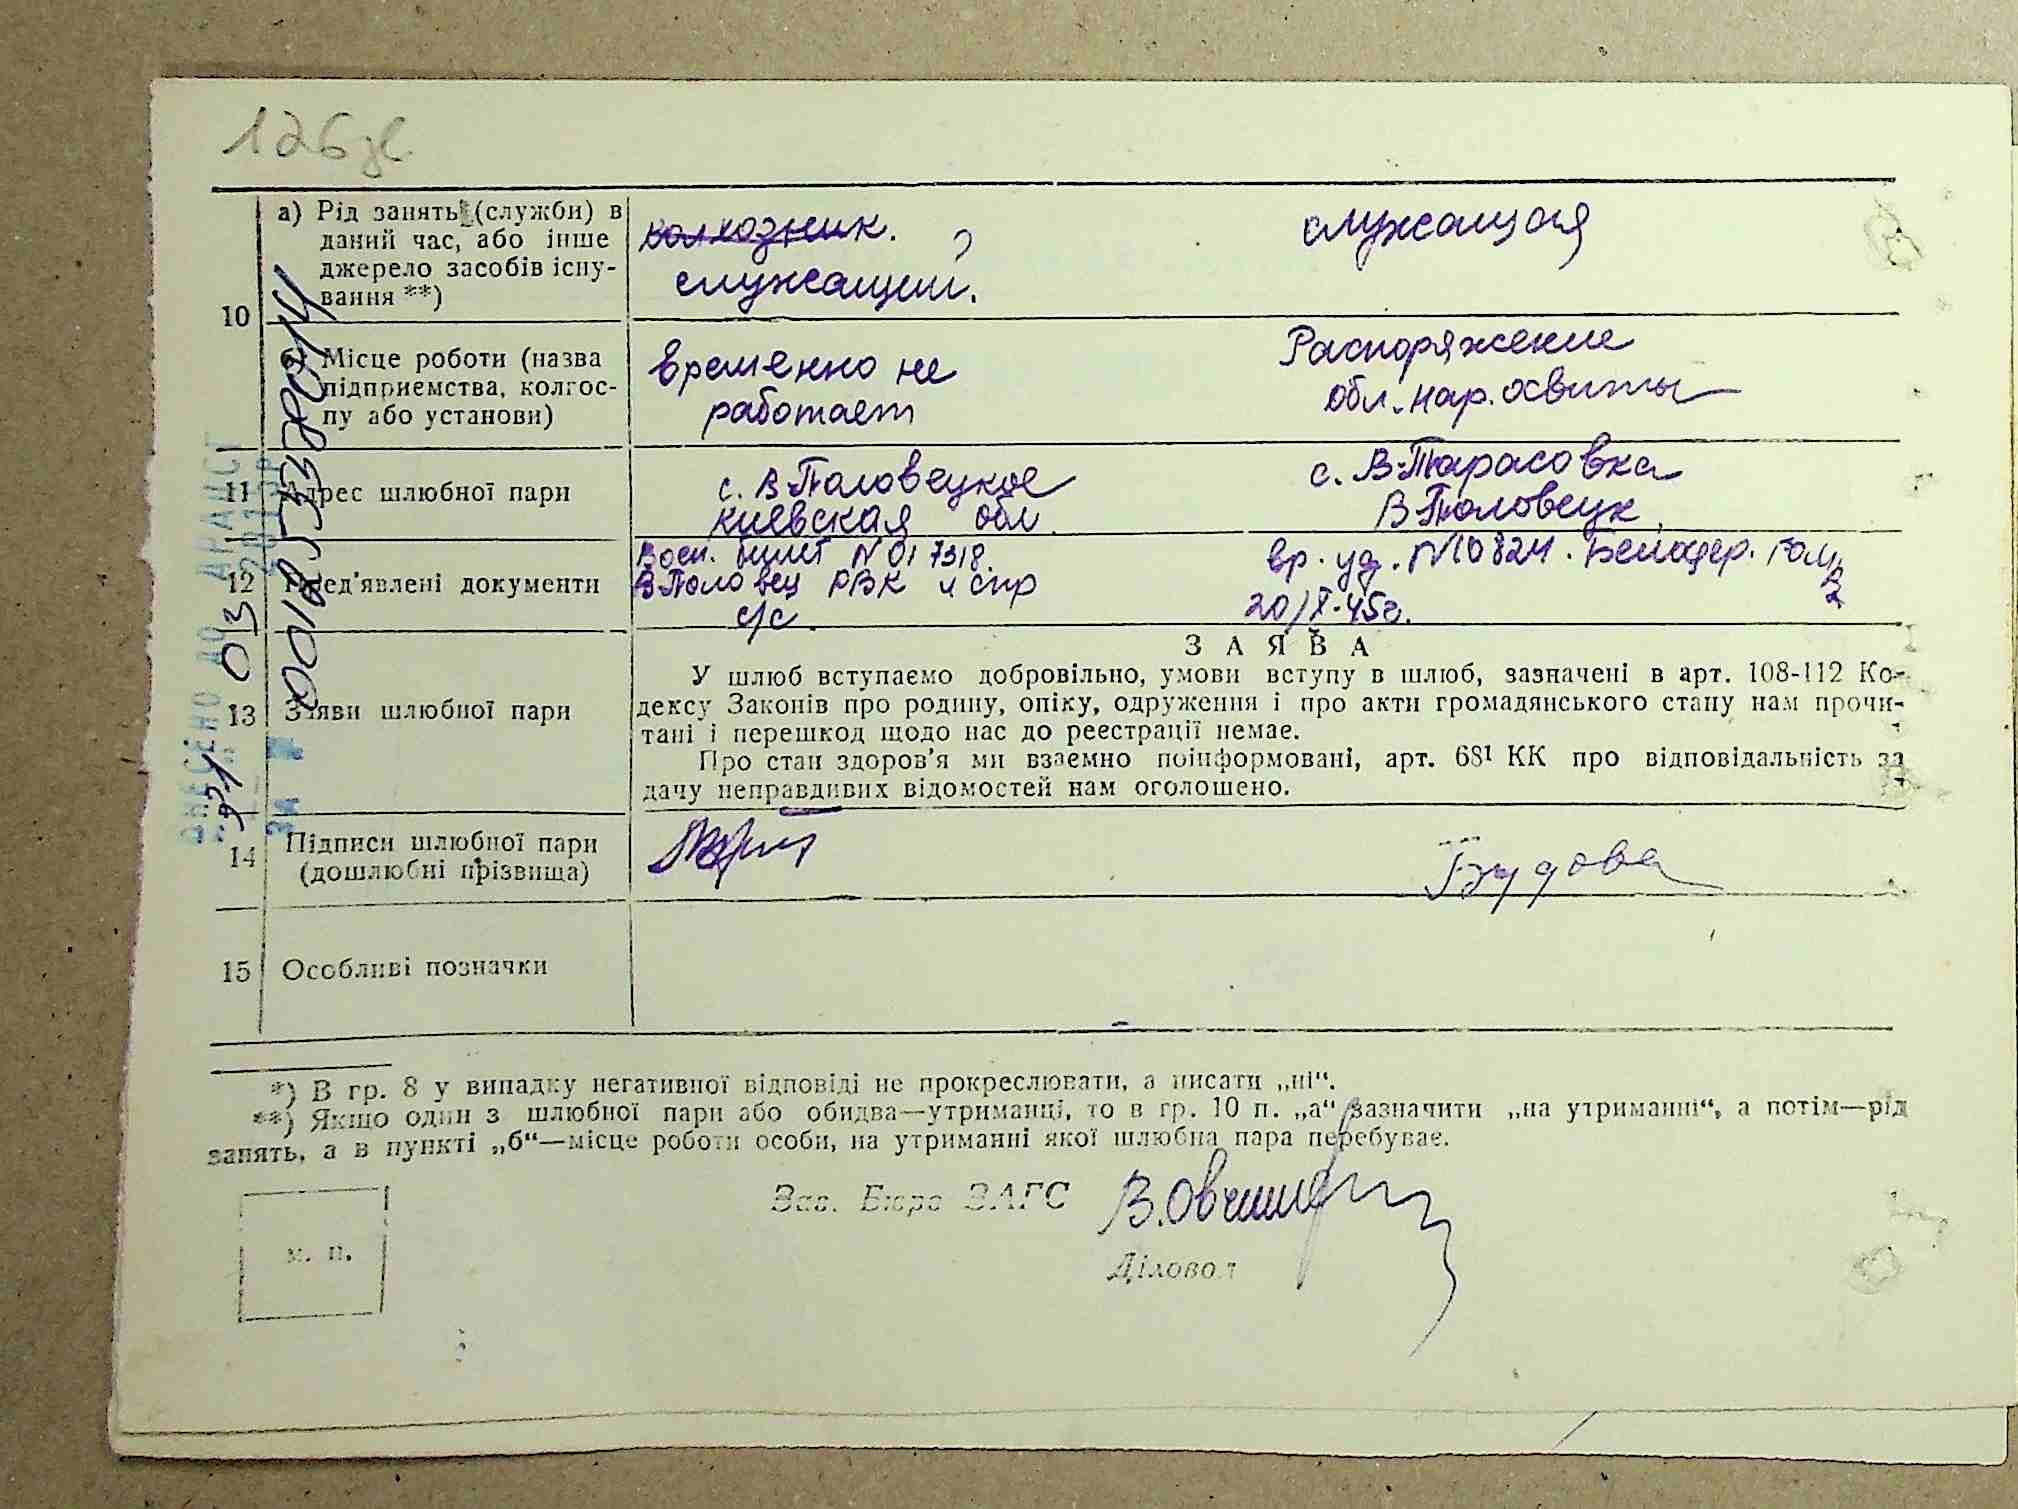 126 зв.
а) Рід занять (служби) в
даний час, або інше
джерело засобів існу-
вання **)
колхозник.
служащий.
служащая
10
Місце роботи (назва
підприємства, колгос-
пу або установи)
временно не
работает
Распоряжение
обл. нар. освиты
11 Адрес шлюбної пари
с. В-Половецкое
киевская обл.
с. В-Тарасовка
В Половецк.
12 Пред'явлені документи
Воен. билет N 017318.
В Половец РВК и спр
с/с.
вр. уд. N 10824. Белоцер.
20/X-45г.
13 Заяви шлюбної пари
ЗАЯВА
У шлюб вступаємо добровільно, умови вступу в шлюб, зазначені в арт. 108-112 Ко-
дексу Законів про родину, опіку, одруження і про акти громадянського стану нам прочи-
тані і перешкод щодо нас до реєстрації немає.
Про стан здоров'я ми взаємно поінформовані, арт. 68¹ КК про відповідальність за
дачу неправдивих відомостей нам оголошено.
14 Підписи шлюбної пари
(дошлюбні прізвища)
15 Особливі позначки
*) В гр. 8 у випадку негативної відповіді не прокреслювати, а писати „ні“.
**) Якщо один з шлюбної пари або обидва—утриманці, то в гр. 10 п. „а“ зазначити „на утриманні“, а потім—рід
занять, а в пункті „б“—місце роботи особи, на утриманні якої шлюбна пара перебуває.
Зав. Бюро ЗАГС
Діловод
м. п.
ВНЕСЕНО ДО ДРАЦСГ
03